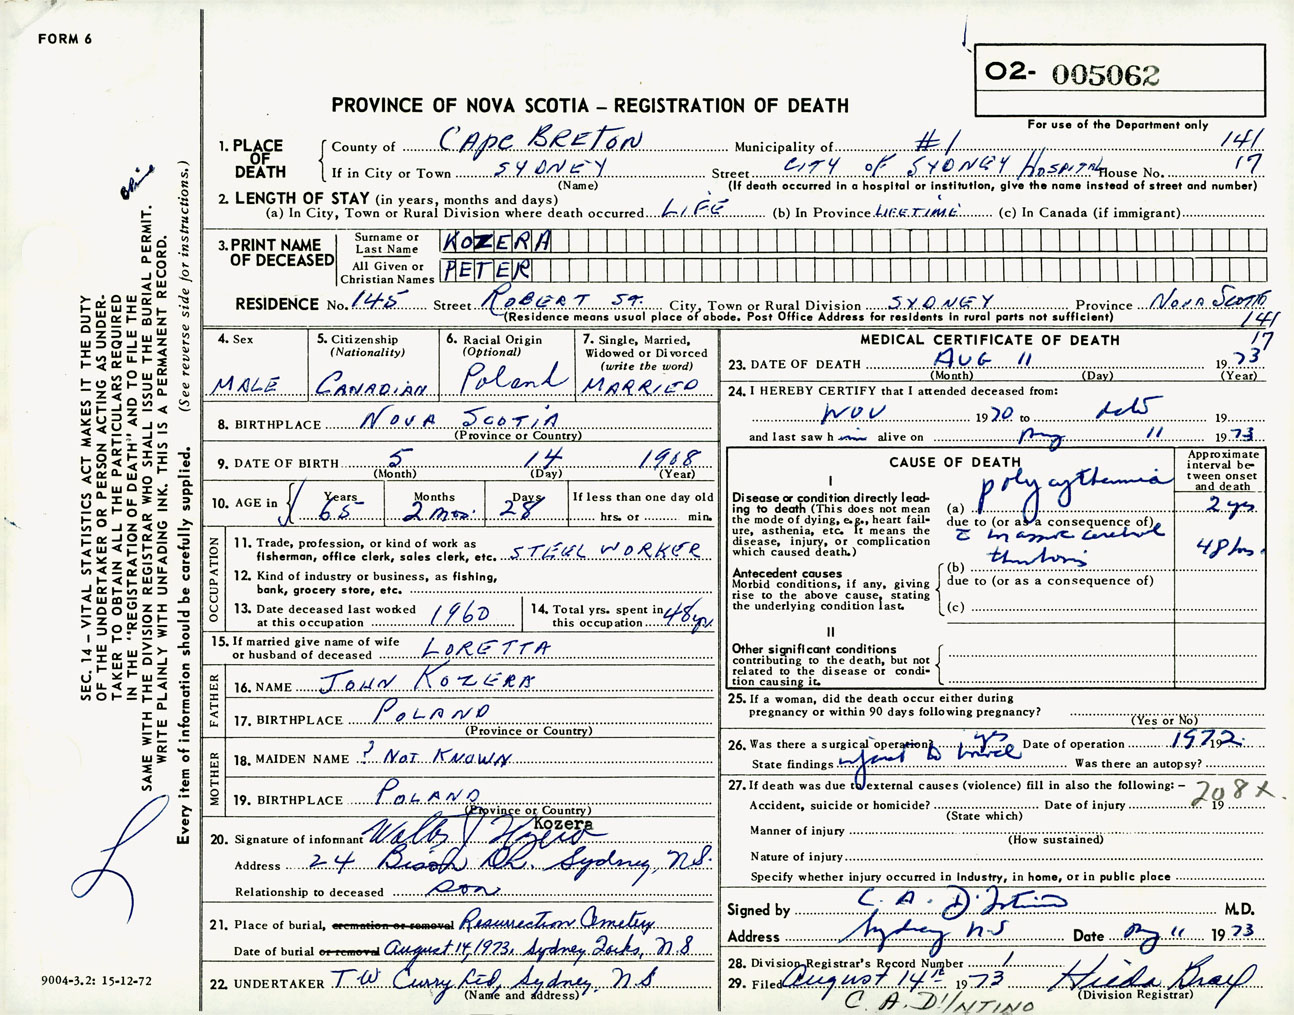 FORM 6
O2- 005062
For use of the Department only
PROVINCE OF NOVA SCOTIA – REGISTRATION OF DEATH
1. PLACE OF DEATH County of CAPE BRETON Municipality of #1 141
If in City or Town SYDNEY Street CITY OF SYDNEY HOSPITAL House No. 17
(Name) (If death occurred in a hospital or institution, give the name instead of street and number)
2. LENGTH OF STAY (in years, months and days)
(a) In City, Town or Rural Division where death occurred LIFE (b) In Province LIFETIME (c) In Canada (if immigrant)
3. PRINT NAME OF DECEASED Surname or Last Name KOZERA
All Given or Christian Names PETER
RESIDENCE No. 145 Street ROBERT ST. City, Town or Rural Division SYDNEY Province NOVA SCOTIA
(Residence means usual place of abode. Post Office Address for residents in rural parts not sufficient) 141
17
4. Sex MALE
5. Citizenship (Nationality) CANADIAN
6. Racial Origin (Optional) Poland
7. Single, Married, Widowed or Divorced (write the word) MARRIED
8. BIRTHPLACE NOVA SCOTIA
(Province or Country)
9. DATE OF BIRTH 5 14 1908
(Month) (Day) (Year)
10. AGE in Years 65 Months 2 mos. Days 28 If less than one day old hrs. or min.
OCCUPATION
11. Trade, profession, or kind of work as fisherman, office clerk, sales clerk, etc. STEEL WORKER
12. Kind of industry or business, as fishing, bank, grocery store, etc.
13. Date deceased last worked at this occupation 1960
14. Total yrs. spent in this occupation 48 yrs.
15. If married give name of wife or husband of deceased LORETTA
FATHER
16. NAME JOHN KOZERA
17. BIRTHPLACE POLAND
(Province or Country)
MOTHER
18. MAIDEN NAME ? NOT KNOWN
19. BIRTHPLACE POLAND
(Province or Country)
Kozera
20. Signature of informant Kozera
Address 24 Dr. Sydney, N.S.
Relationship to deceased son
21. Place of burial, cremation or removal Resurrection Cemetery
Date of burial or removal August 14, 1973, Sydney Forks, N.S
22. UNDERTAKER T W Curry Ltd, Sydney, N S
(Name and address)
MEDICAL CERTIFICATE OF DEATH
23. DATE OF DEATH AUG 11 1973
(Month) (Day) (Year)
24. I HEREBY CERTIFY that I attended deceased from:
Nov 1970 to date 19
and last saw him alive on Aug 11 1973
CAUSE OF DEATH
Approximate interval between onset and death
I
Disease or condition directly leading to death (This does not mean the mode of dying, e.g., heart failure, asthenia, etc. It means the disease, injury, or complication which caused death.)
(a) polycythemia 2 yrs
due to (or as a consequence of)
massive cerebral
(b) thrombosis 48 hrs.
Antecedent causes
Morbid conditions, if any, giving rise to the above cause, stating the underlying condition last.
due to (or as a consequence of)
(c)
II
Other significant conditions contributing to the death, but not related to the disease or condition causing it.
25. If a woman, did the death occur either during pregnancy or within 90 days following pregnancy?
(Yes or No)
26. Was there a surgical operation? yes Date of operation 1972
State findings bowel Was there an autopsy?
27. If death was due to external causes (violence) fill in also the following: – 208 x.
Accident, suicide or homicide? Date of injury 19
(State which)
Manner of injury
(How sustained)
Nature of injury
Specify whether injury occurred in Industry, in home, or in public place
Signed by C. A. D'Intino M.D.
Address Sydney N.S Date Aug 11 1973
28. Division Registrar's Record Number 1
29. Filed August 14th 1973 Hilda Bray
(Division Registrar)
C. A. D'INTINO
SEC. 14 – VITAL STATISTICS ACT MAKES IT THE DUTY
OF THE UNDERTAKER OR PERSON ACTING AS UNDERTAKER
TO OBTAIN ALL THE PARTICULARS REQUIRED
IN THE "REGISTRATION OF DEATH" AND TO FILE THE
SAME WITH THE DIVISION REGISTRAR WHO SHALL ISSUE THE BURIAL PERMIT.
WRITE PLAINLY WITH UNFADING INK. THIS IS A PERMANENT RECORD.
Every item of information should be carefully supplied. (See reverse side for instructions.)
9004-3.2: 15-12-72